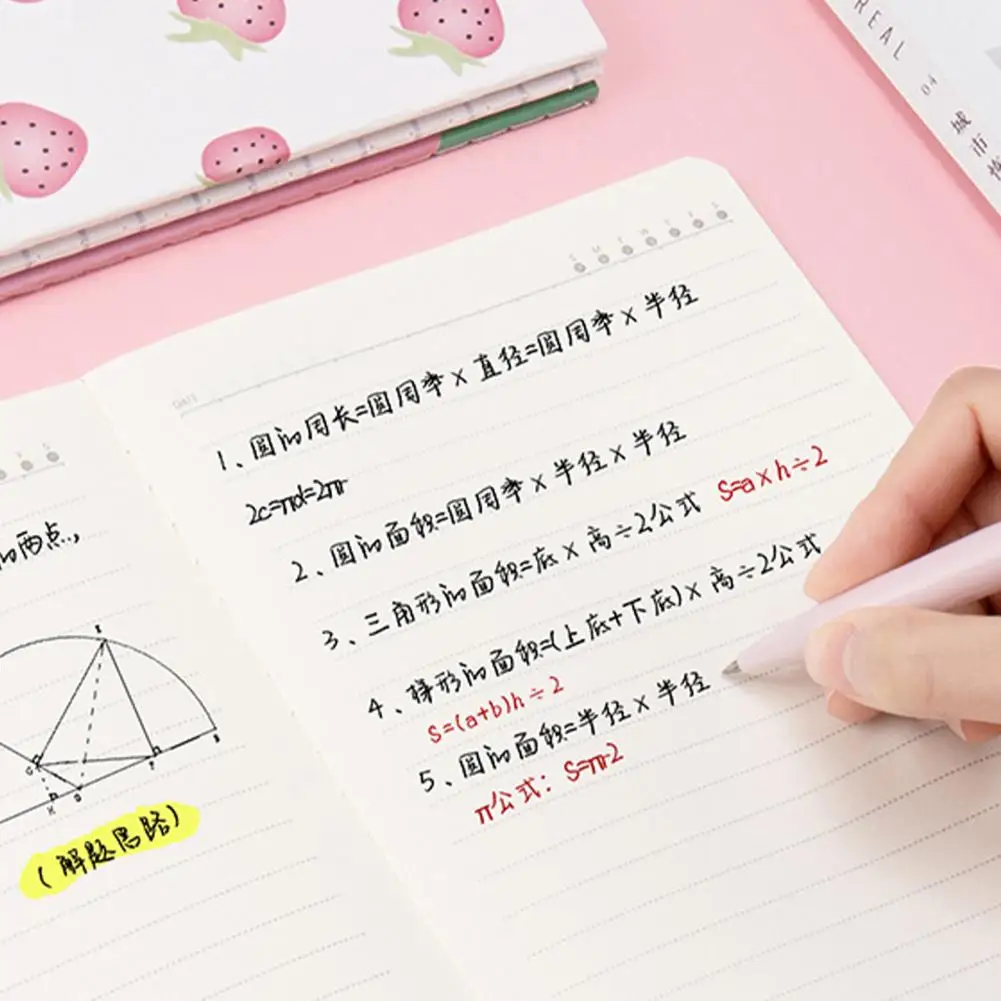 REAL OF
城市
S M T W T F S
DATE
1、圆的周长=圆周率×直径=圆周率×半径
2c=πd=2πr
2、圆的面积=圆周率×半径×半径
3、三角形的面积=底×高÷2公式 S=a×h÷2
4、梯形的面积=(上底+下底)×高÷2公式
S=(a+b)h÷2
5、圆的面积=半径×半径
π公式: S=πr2
的两点.,
(解题思路)